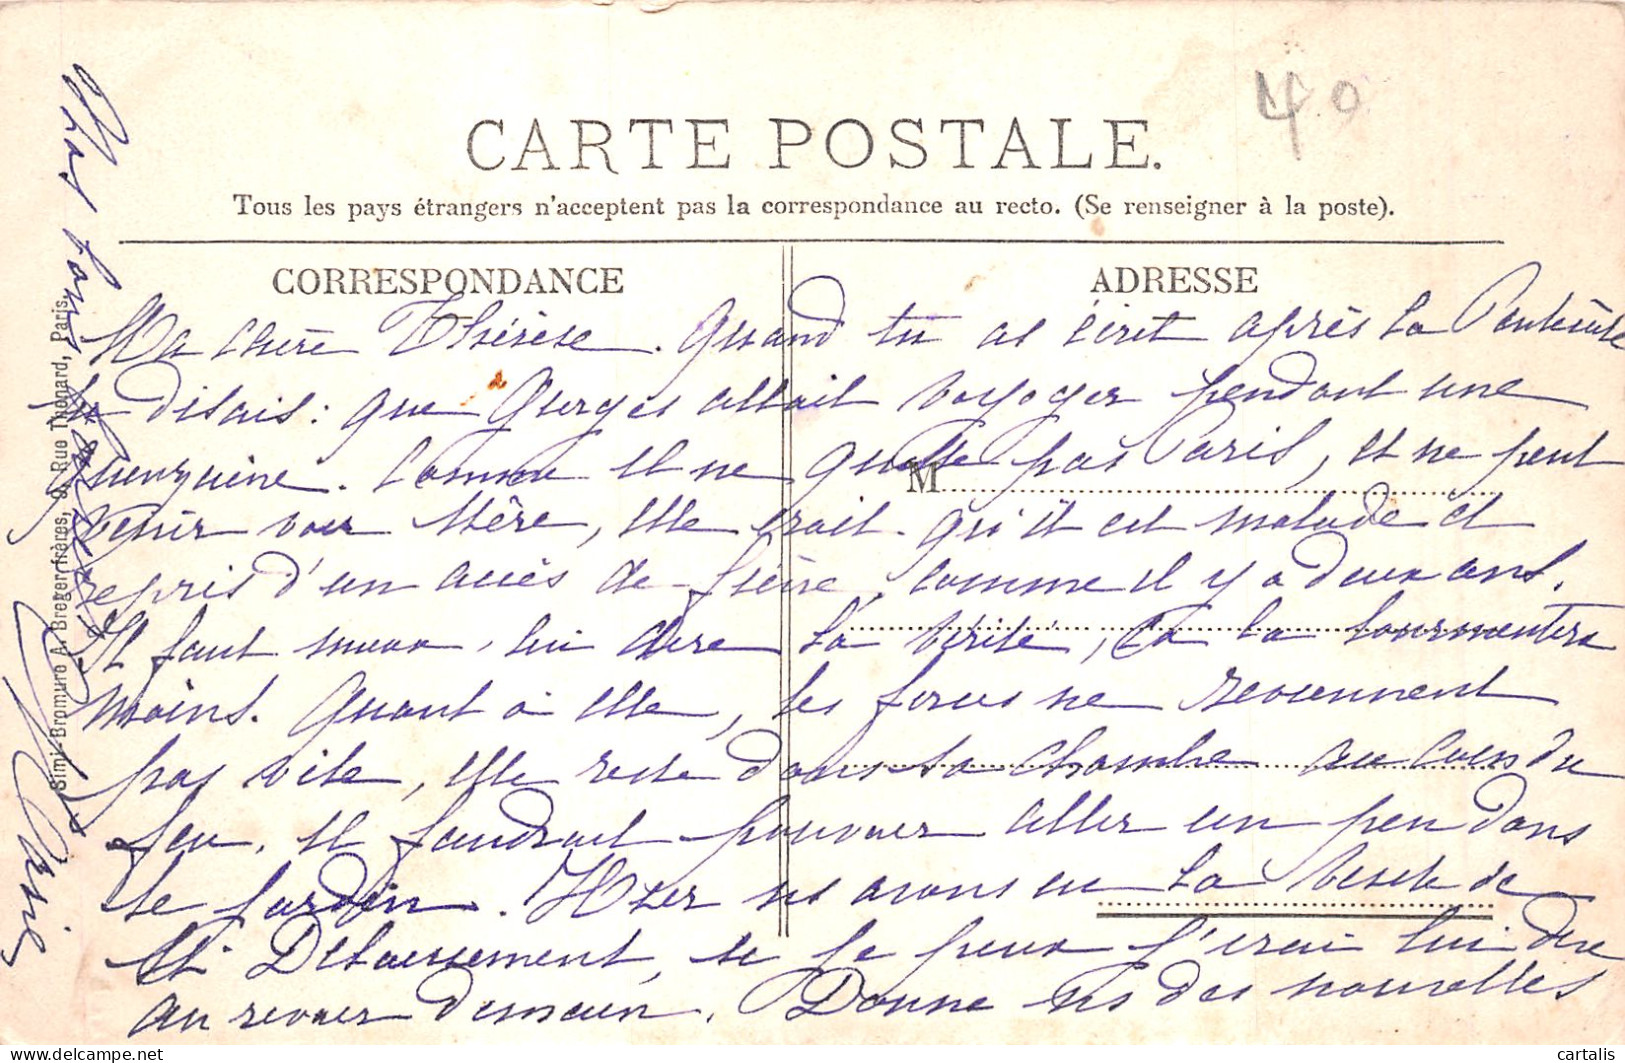 40
CARTE POSTALE.
Tous les pays étrangers n'acceptent pas la correspondance au recto. (Se renseigner à la poste).
CORRESPONDANCE
ADRESSE
M
Ma chère Thérèse. Quand tu as écrit après la Pentecôte
tu disais: que Georges allait voyager pendant une
quinzaine. Comme il ne quitte pas Paris, et ne peut
venir voir Mère, elle croit qu'il est malade et
repris d'un accès de fièvre, comme il y a deux ans.
Il faut mieux lui dire la vérité, ça la tourmentera
moins. Quant à elle, les forces ne reviennent
pas vite, elle reste dans sa chambre au coin du
feu, il faudrait pouvoir aller un peu dans
le jardin. Hier ns avons eu la visite de
Mr Delaessement, si je peux j'irai lui dire
au revoir demain. Donne ns des nouvelles
Marie
Simi-Bromure A. Breger frères, 9, Rue Thénard, Paris.
cartalis
delcampe.net